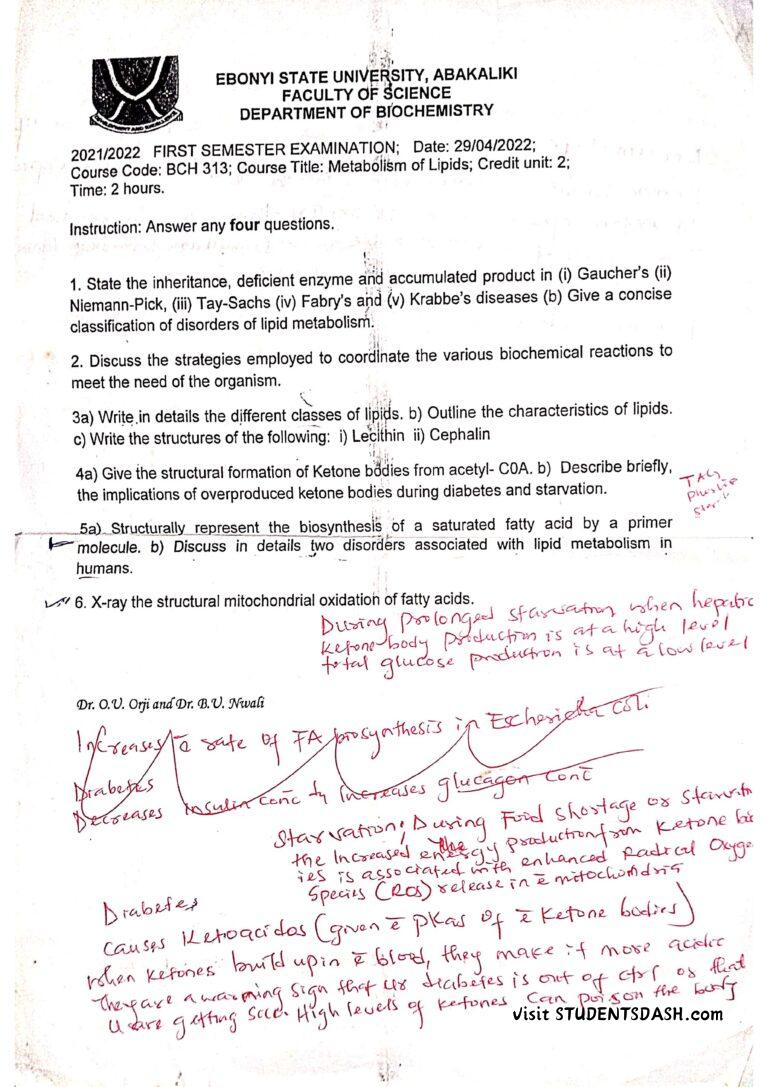 EBONYI STATE UNIVERSITY, ABAKALIKI
FACULTY OF SCIENCE
DEPARTMENT OF BIOCHEMISTRY
2021/2022 FIRST SEMESTER EXAMINATION; Date: 29/04/2022;
Course Code: BCH 313; Course Title: Metabolism of Lipids; Credit unit: 2;
Time: 2 hours.
Instruction: Answer any four questions.
1. State the inheritance, deficient enzyme and accumulated product in (i) Gaucher's (ii)
Niemann-Pick, (iii) Tay-Sachs (iv) Fabry's and (v) Krabbe's diseases (b) Give a concise
classification of disorders of lipid metabolism.
2. Discuss the strategies employed to coordinate the various biochemical reactions to
meet the need of the organism.
3a) Write in details the different classes of lipids. b) Outline the characteristics of lipids.
c) Write the structures of the following: i) Lecithin ii) Cephalin
4a) Give the structural formation of Ketone bodies from acetyl- C0A. b) Describe briefly,
the implications of overproduced ketone bodies during diabetes and starvation.
TAG
5a) Structurally represent the biosynthesis of a saturated fatty acid by a primer
molecule. b) Discuss in details two disorders associated with lipid metabolism in
humans.
6. X-ray the structural mitochondrial oxidation of fatty acids.
During prolonged starvation when hepatic
Ketone body production is at a high level
total glucose production is at a low level
Dr. O.U. Orji and Dr. B.U. Nwali
Increases ē rate of FA biosynthesis in Escherichia Coli
Diabetes
Decreases insulin conc & Increases glucagon conc
Starvation; During Food shortage or Starvatn
the Increased energy production from Ketone bod
ies is associated with enhanced Radical Oxyge
Species (ROS) release in ē mitochondria
Diabetes
Causes Ketoacidos (given ē pKas of ē Ketone bodies)
When Ketones build up in ē blood, they make it more acidic
They are a warning sign that ur diabetes is out of ctrl or that
U are getting High levels of ketones Can poison the body
Visit STUDENTSDASH.com